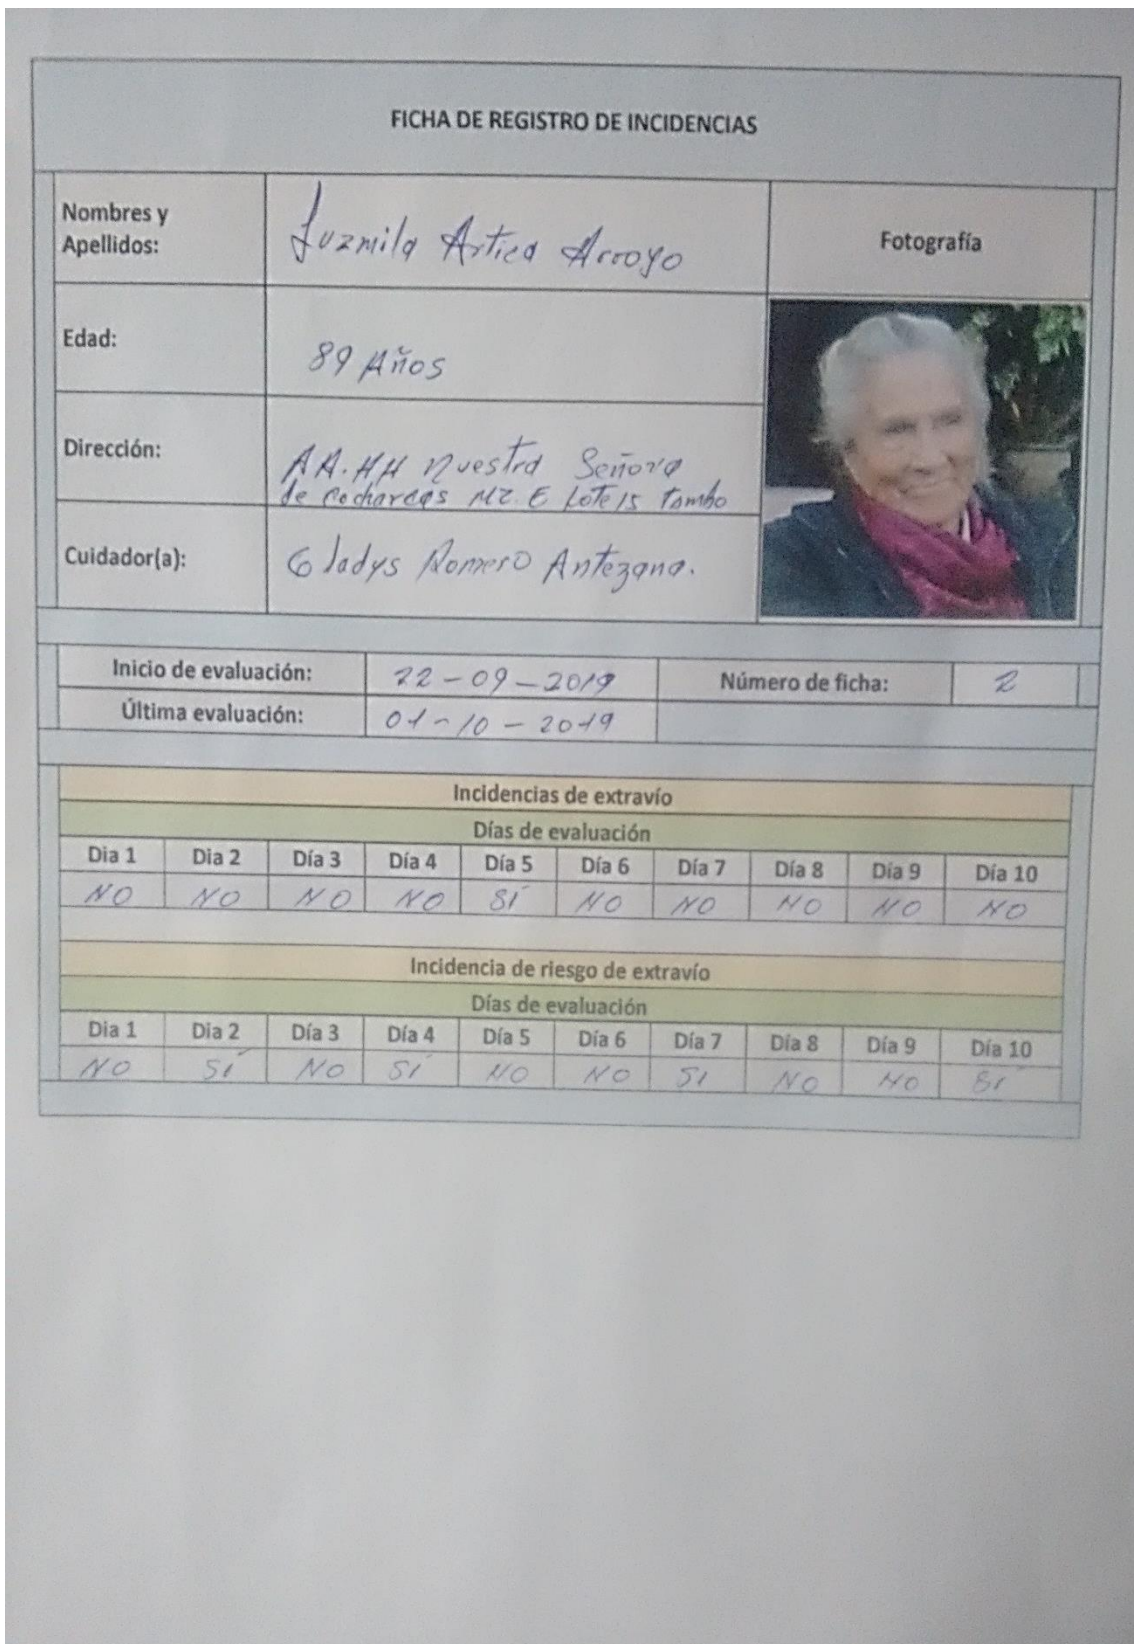 FICHA DE REGISTRO DE INCIDENCIAS
Nombres y
Apellidos:
Luzmila Artica Arroyo
Fotografía
Edad:
89 Años
Dirección:
AA.HH Nuestra Señora
de Cocharcas MZ. E Lote 15 Tambo
Cuidador(a):
Gladys Romero Antezana.
Inicio de evaluación: 22-09-2019 Número de ficha: 2
Última evaluación: 01-10-2019
Incidencias de extravío
Días de evaluación
Dia 1 Dia 2 Día 3 Día 4 Día 5 Día 6 Día 7 Día 8 Día 9 Día 10
NO NO NO NO SÍ NO NO NO NO NO
Incidencia de riesgo de extravío
Días de evaluación
Dia 1 Dia 2 Día 3 Día 4 Día 5 Día 6 Día 7 Día 8 Día 9 Día 10
NO SÍ NO SÍ NO NO SI NO NO SÍ